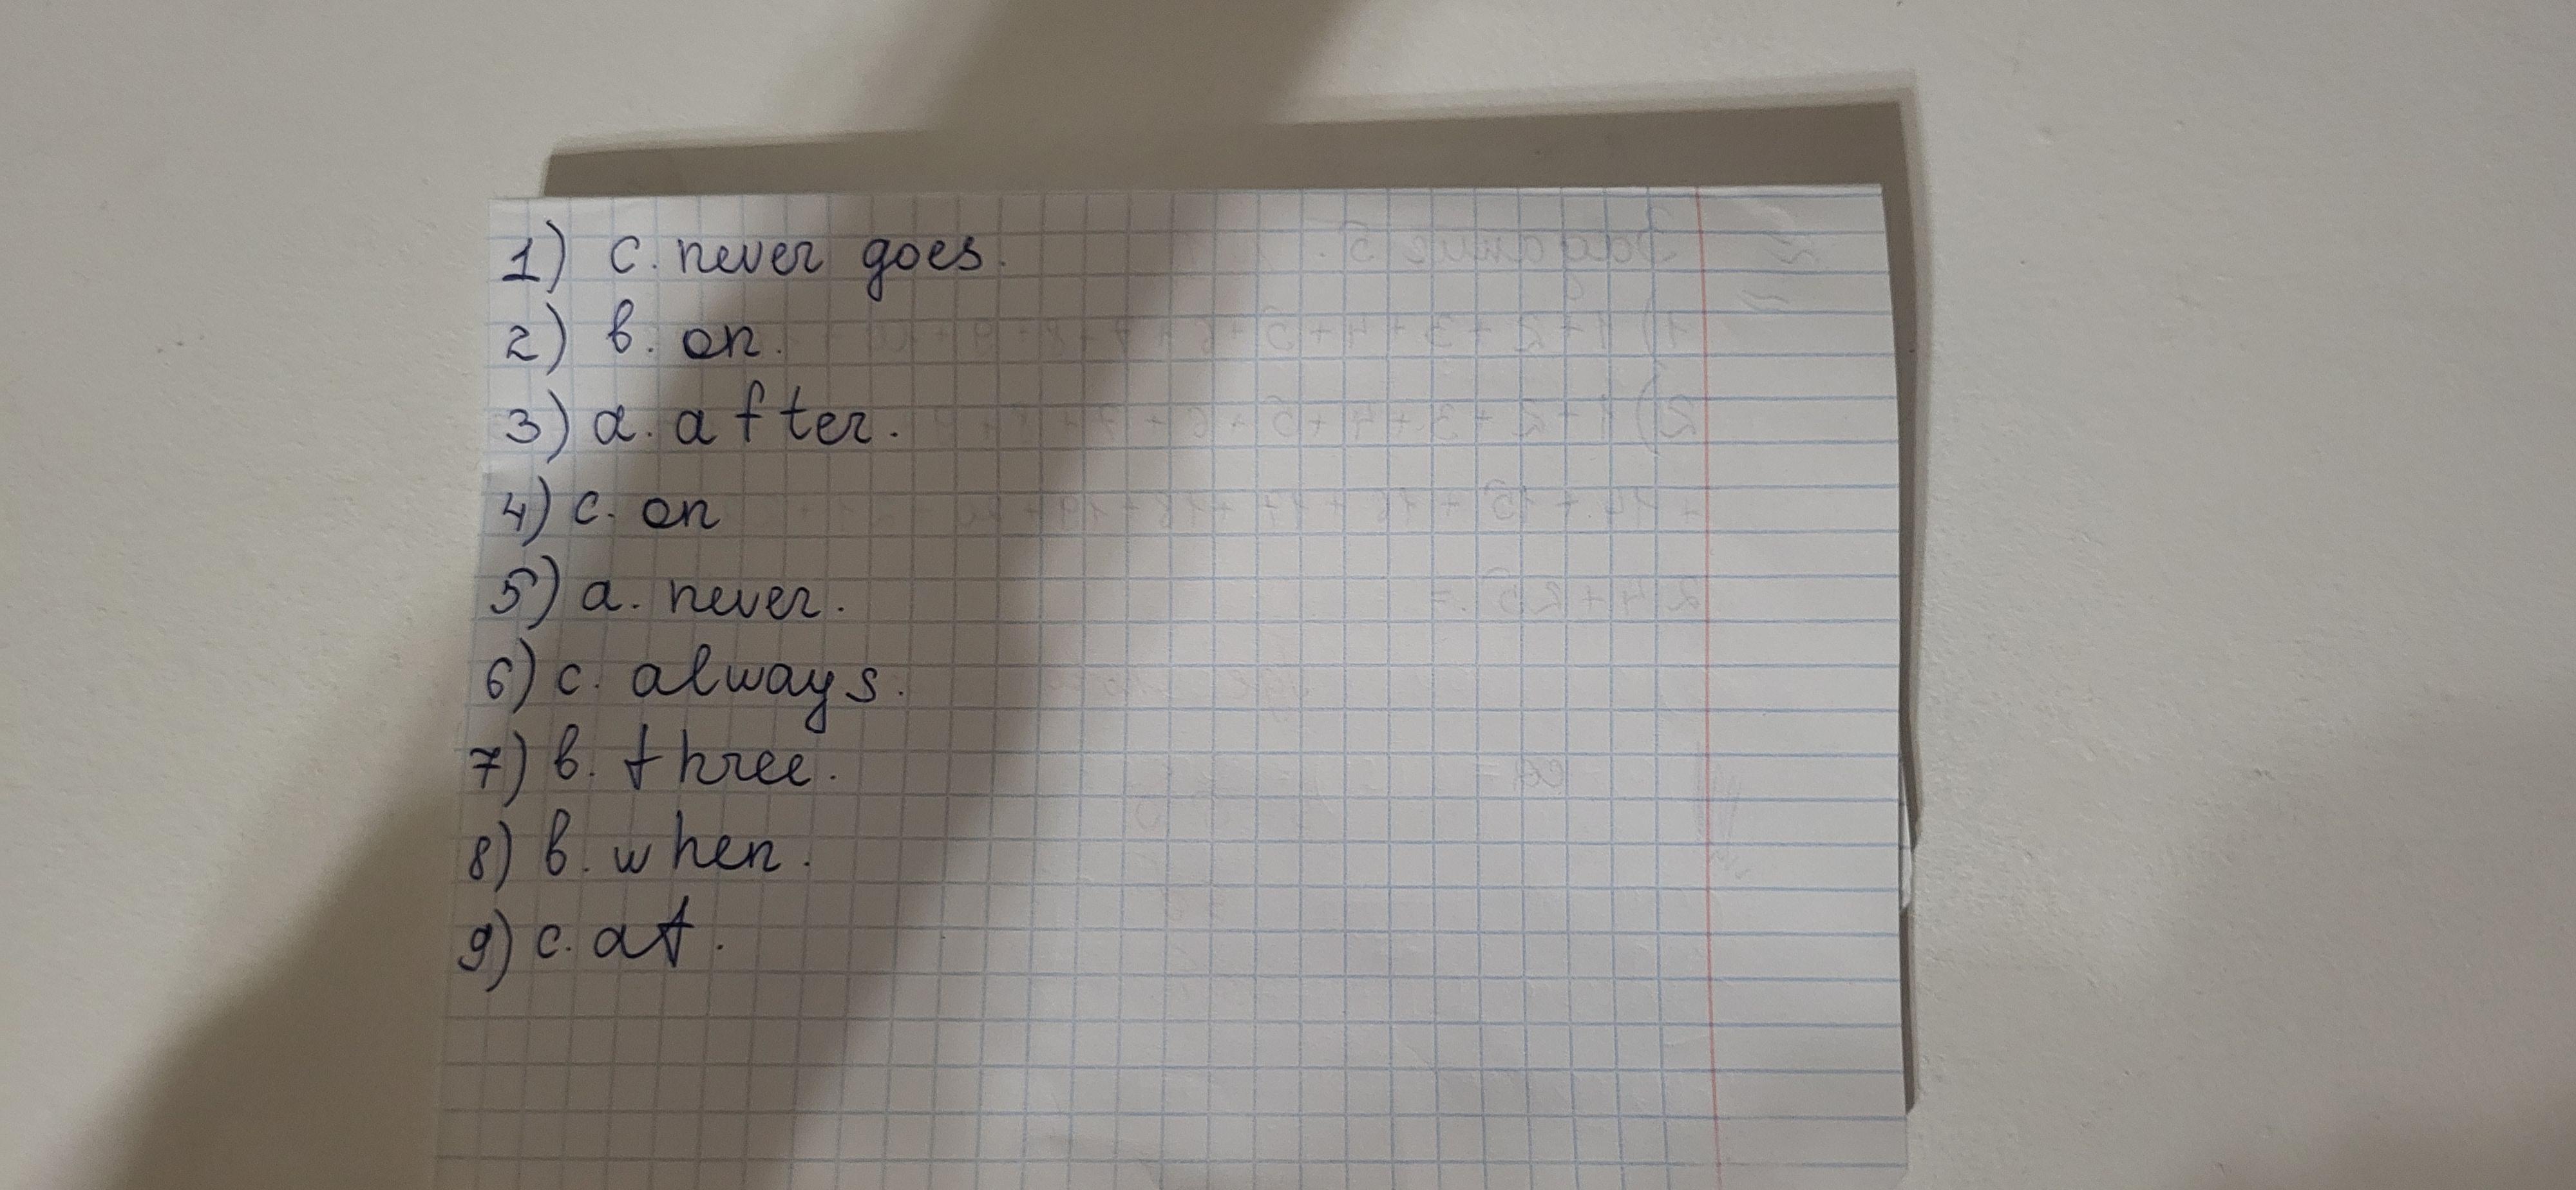 1) c. never goes.
2) b. on.
3) a. after.
4) c. on
5) a. never.
6) c. always.
7) b. three.
8) b. when.
9) c. at.